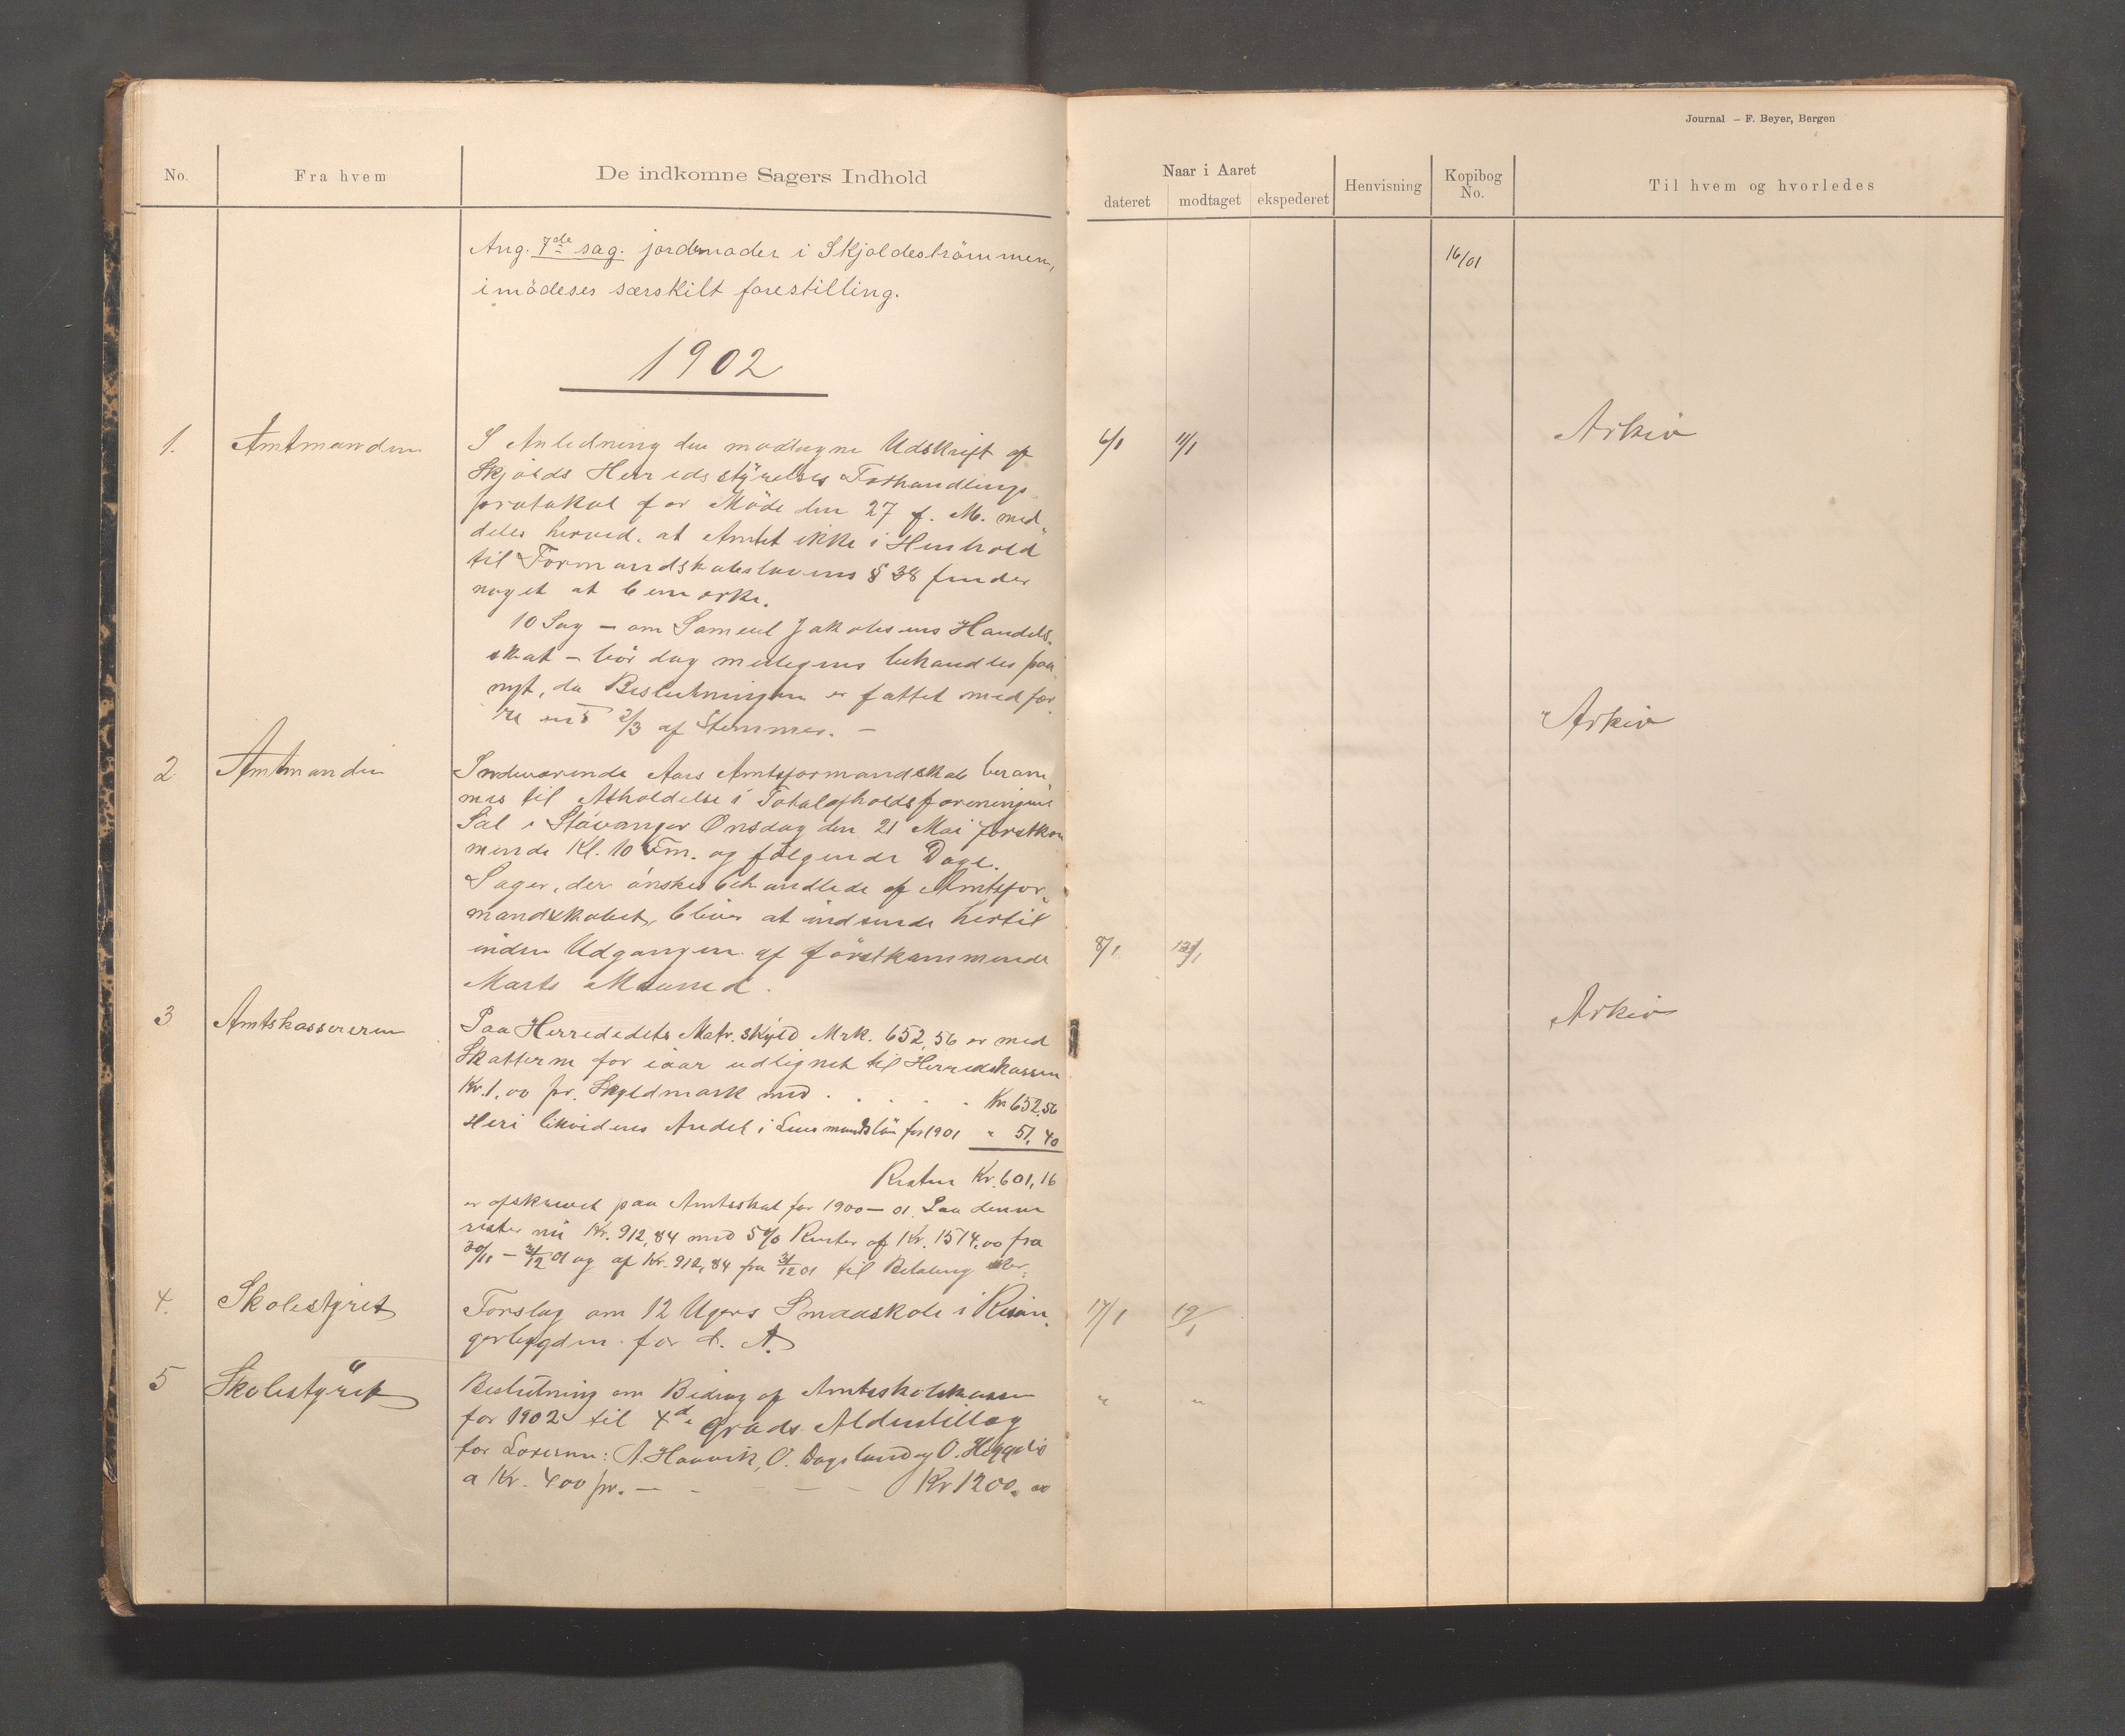 Journal – F. Beyer, Bergen
No.
Fra hvem
De indkomne Sagers Indhold
Naar i Aaret
dateret
modtaget
ekspederet
Henvisning
Kopibog
No.
Til hvem og hvorledes
Ang. 7de sag. jordmoder i Skjoldeströmmen,
imödeses særskilt forestilling.
16/01
1902
1.
Amtmanden
I Anledning den modtagne Udskrift af
Skjolds Herredsstyrelses Forhandlings
protokol for Möde den 27 f. M. med-
deles herved, at Amtet ikke i Henhold
til Formandskabslovens § 38 finder
noget at bemerke.
10 Sag – om Sameul Jakobsens Handels-
skat – bör dog muligens behandles paa
nyt, da Beslutningen er fattet med fær-
re end 2/3 af Stemmer. –
6/1
11/1
Arkiv
2
Amtmanden
Indeværende Aars Amtsformandskab beram
mes til Afholdelse i Totalafholdsforeningens
Sal i Stavanger Onsdag den 21 Mai förstkom
mende Kl. 10 Fm. og følgende Dage.
Sager, der ønskes behandlede af Amtsfor-
mandskabet, bliver at indsende hertil
inden Udgangen af förstkommende
Marts Maaned.
8/1
Arkiv
3
Amtskassereren
Paa Herrededets Matr. skyld Mrk. 652,56 er med
Skatterne for iaar udlignet til Herredskassen
Kr. 1,00 pr. Skyldmark med . . . . . Kr 652,56
Heri likvideres Andel i Lensmandslön for 1901 " 51,40
Resten Kr. 601,16
er afskrevet paa Amtsskat for 1900–01. Paa denne
rester nu Kr. 912,84 med 5% Renter af Kr. 1514,00 fra
30/11 – 31/12 01 og af Kr. 912,84 fra 31/12 01 til Betaling sker.
Arkiv
4.
Skolestyret
Forslag om 12 Ugers Smaaskole i
for d. A.
17/1
19/1
5
Skolestyret
Beslutning om Bidrag af Amtsskolekassen
for 1902 til 4de Grads Alderstillæg
for Lærerne: A. Hauvik, O. Dagsland og O. Heggelo
a Kr. 400 pr. – - – – – Kr 1200,00
"
"